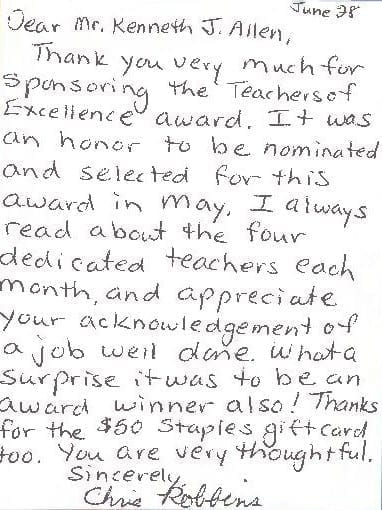 June 28
Dear Mr. Kenneth J. Allen,
Thank you very much for
sponsoring the Teachers of
Excellence award. It was
an honor to be nominated
and selected for this
award in May. I always
read about the four
dedicated teachers each
month, and appreciate
your acknowledgement of
a job well done. What a
surprise it was to be an
award winner also! Thanks
for the $50 Staples giftcard
too. You are very thoughtful.
Sincerely,
Chris Robbins